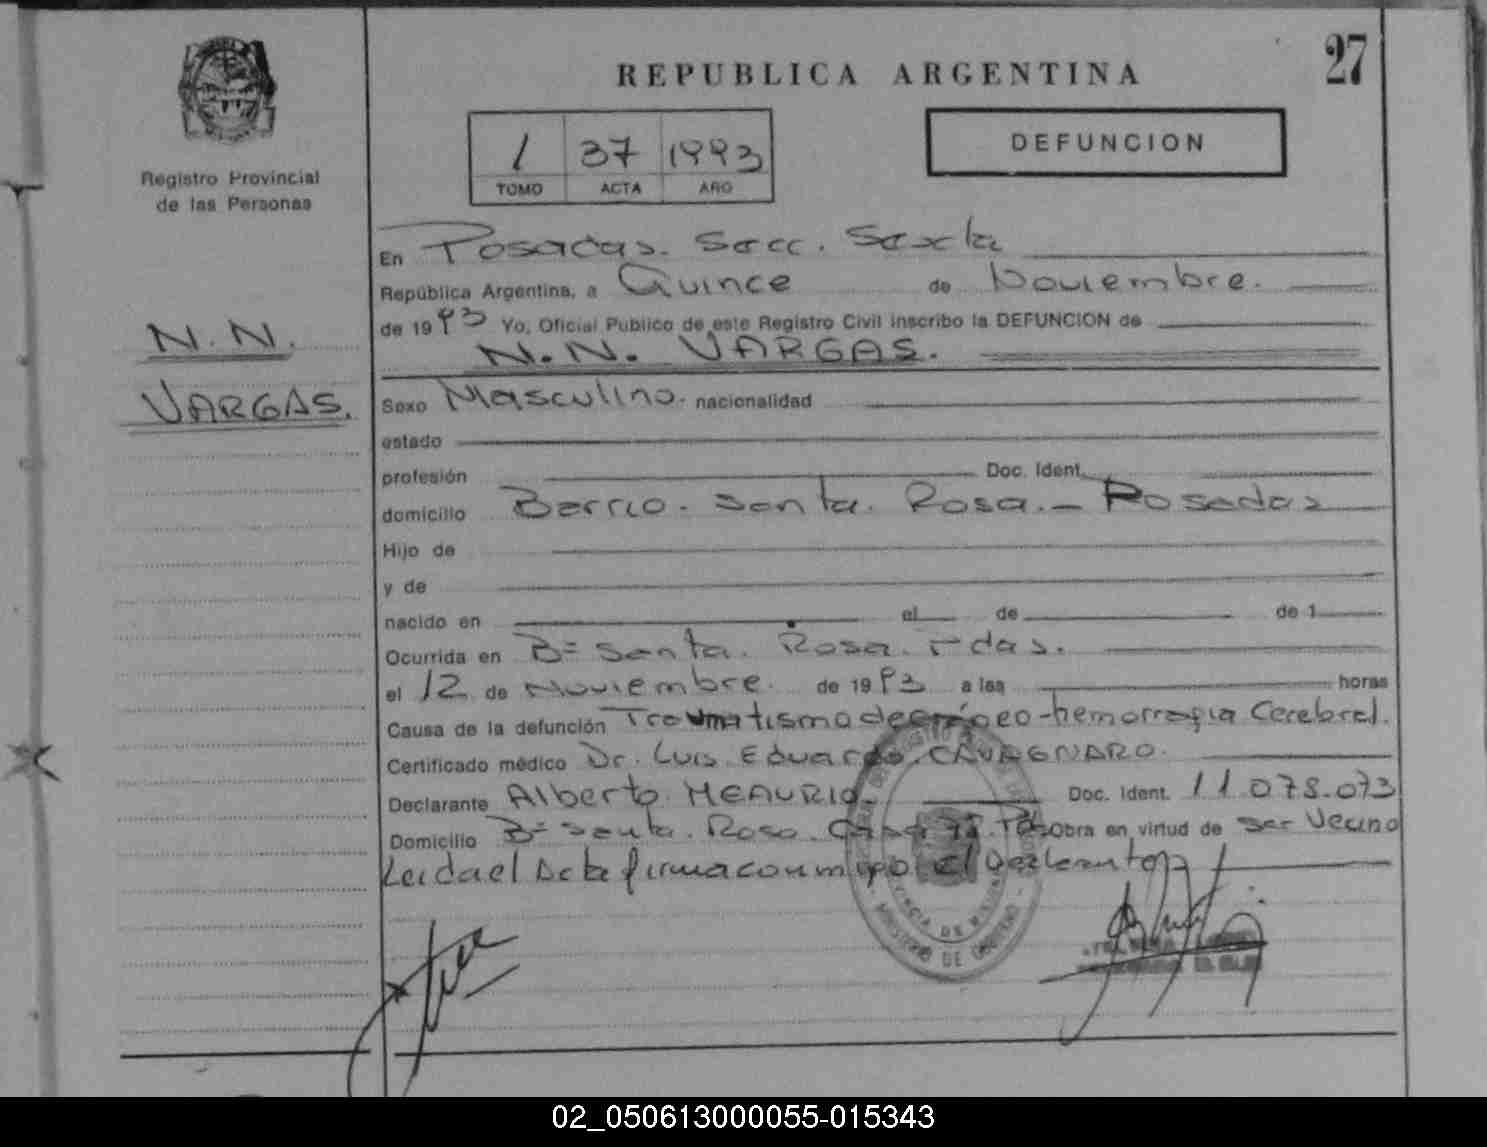 27
REPUBLICA ARGENTINA
1 37 1993
TOMO ACTA AÑO
DEFUNCION
Registro Provincial
de las Personas
N.N.
VARGAS.
En Posadas. Secc. Sexta
República Argentina, a Quince de Noviembre.
de 1993 Yo, Oficial Publico de este Registro Civil inscribo la DEFUNCION de
N.N. VARGAS.
Sexo Masculino. nacionalidad
estado
profesión Doc. Ident.
domicilio Barrio. Santa. Rosa. - Posadas
Hijo de
y de
nacido en el de de 1
Ocurrida en Bº Santa. Rosa. Pdas.
el 12 de Noviembre. de 1993 a las horas
Causa de la defunción Traumatismo de cráneo-hemorragia Cerebral.
Certificado médico Dr. Luis Eduardo. CAVAGNARO.
Declarante Alberto. MEAURIO. Doc. Ident. 11.078.073
Domicilio Bº Santa. Rosa. Casa Obra en virtud de ser Vecino
Leida el Acta firma conmigo el Declarante
MINISTERIO DE GOBIERNO
02_050613000055-015343